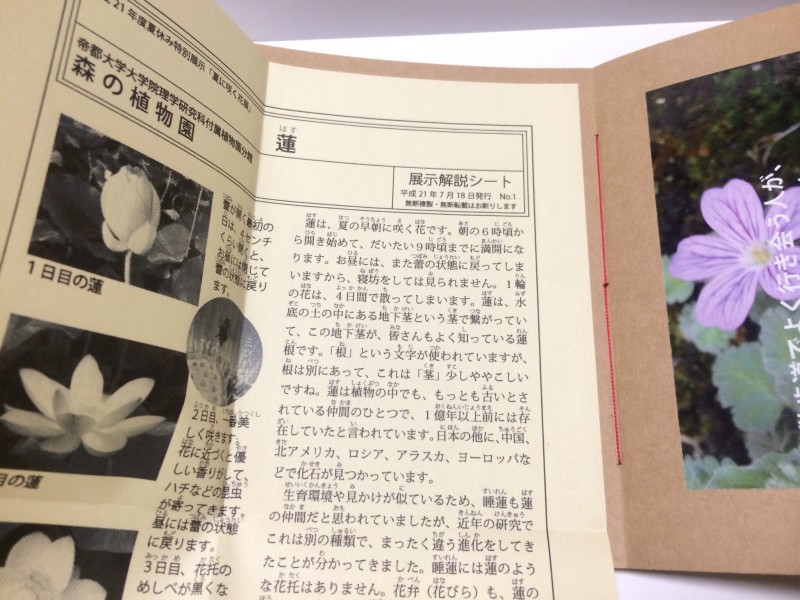 21年度夏休み特別展示「夏に咲く花展」
帝都大学大学院理学研究科付属植物園分館
森の植物園
はす
蓮
展示解説シート
平成21年7月18日発行 No.1
無断複製・無断転載はお断りします
1日目の蓮
日目の蓮
蕾が開く最初の
日は、4センチ
くらい開くと、
お昼には閉じて
蕾の状態に戻り
ます。
2日目、一番美
しく咲きます。
花に近づくと優
しい香りがして、
ハチなどの昆虫
が寄ってきます。
昼には蕾の状態
に戻ります。
3日目、花托の
めしべが黒くな
蓮は、夏の早朝に咲く花です。朝の6時頃か
ら開き始めて、だいたい9時頃までに満開にな
ります。お昼には、また蕾の状態に戻ってしま
いますから、寝坊をしては見られません。1輪
の花は、4日間で散ってしまいます。蓮は、水
底の土の中にある地下茎という茎で繋がってい
て、この地下茎が、皆さんもよく知っている蓮
根です。「根」という文字が使われていますが、
根は別にあって、これは「茎」少しややこしい
ですね。蓮は植物の中でも、もっとも古いとさ
れている仲間のひとつで、1億年以上前には存
在していたと言われています。日本の他に、中国、
北アメリカ、ロシア、アラスカ、ヨーロッパな
どで化石が見つかっています。
生育環境や見かけが似ているため、睡蓮も蓮
の仲間だと思われていましたが、近年の研究で
これは別の種類で、まったく違う進化をしてき
たことが分かってきました。睡蓮には蓮のよう
な花托はありません。花弁（花びら）も、蓮の
道でよく行き会う人が、